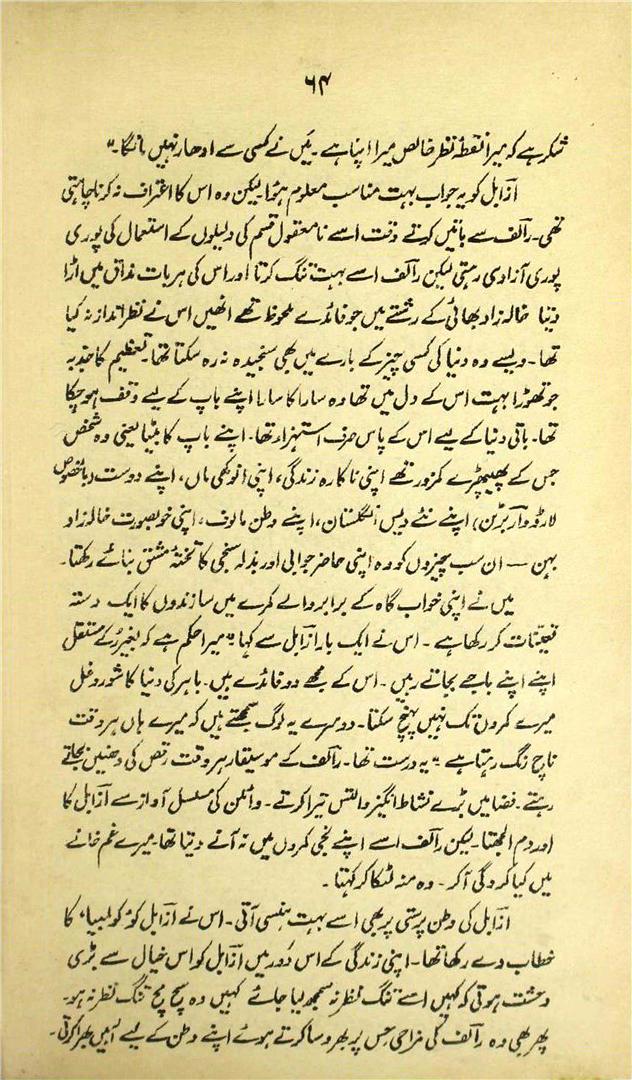 ۶۴
شکر ہے کہ میرا نقطۂ نظر خالص میرا اپنا ہے۔ میں نے کسی سے ادھار نہیں مانگا۔"
ازابل کو یہ جواب بہت مناسب معلوم ہوا لیکن وہ اس کا اعتراف نہ کرنا چاہتی
تھی۔ رالف سے باتیں کرتے وقت اسے نامعقول قسم کی دلیلوں کے استعمال کی پوری
پوری آزادی رہتی لیکن رالف اسے بہت تنگ کرتا اور اس کی ہر بات مذاق میں اڑا
دیتا خالہ زاد بھائی کے رشتے میں جو فائدے ملحوظ تھے انھیں اس نے نظر انداز نہ کیا
تھا۔ ویسے وہ دنیا کی کسی چیز کے بارے میں بھی سنجیدہ نہ رہ سکتا تھا۔ تعظیم کا جذبہ
جو تھوڑا بہت اس کے دل میں تھا وہ سارا کا سارا اپنے باپ کے لیے وقف ہو چکا
تھا۔ باقی دنیا کے لیے اس کے پاس صرف استہزاء تھا۔ اپنے باپ کا بیٹا یعنی وہ شخص
جس کے پھیپھڑے کمزور تھے اپنی ناکارہ زندگی، اپنی انوکھی ماں، اپنے دوست (بالخصوص
لارڈ واربرٹن) اپنے نئے دیس انگلستان، اپنے وطن مالوف، اپنی خوبصورت خالہ زاد
بہن — ان سب چیزوں کو وہ اپنی حاضر جوابی اور بذلہ سنجی کا تختۂ مشق بنائے رکھتا۔
میں نے اپنی خواب گاہ کے برابر والے کمرے میں سازندوں کا ایک دستہ
تعینات کر رکھا ہے۔ اس نے ایک بار ازابل سے کہا "میرا حکم ہے کہ بغیر رُکے مستقل
اپنے اپنے باجے بجاتے رہیں۔ اس کے مجھے دو فائدے ہیں۔ باہر کی دنیا کا شور و غل
میرے کمروں تک نہیں پہنچ سکتا۔ دوسرے یہ لوگ سمجھتے ہیں کہ میرے ہاں ہر وقت
ناچ رنگ رہتا ہے" یہ درست تھا۔ رالف کے موسیقار ہر وقت رقص کی دھنیں بجاتے
رہتے۔ فضا میں بڑے نشاط انگیز والتس تیرا کرتے۔ وائلن کی مسلسل آواز سے ازابل کا
اور دم الجھتا۔ لیکن رالف اسے اپنے نجی کمروں میں نہ آنے دیتا تھا۔ میرے غم خانے
میں کیا کرو گی آکر۔ وہ منہ لٹکا کر کہتا۔
ازابل کی وطن پرستی پر بھی اسے بہت ہنسی آتی۔ اس نے ازابل کو "کولمبیا" کا
خطاب دے رکھا تھا۔ اپنی زندگی کے اس دَور میں ازابل کو اس خیال سے بڑی
وحشت ہوتی کہ کہیں اسے تنگ نظر نہ سمجھ لیا جائے کہیں وہ سچ مچ تنگ نظر نہ ہو۔
پھر بھی وہ رالف کی مزاحی حس پر بھروسا کرتے ہوئے اپنے وطن کے لیے آہیں بھرا کرتی۔